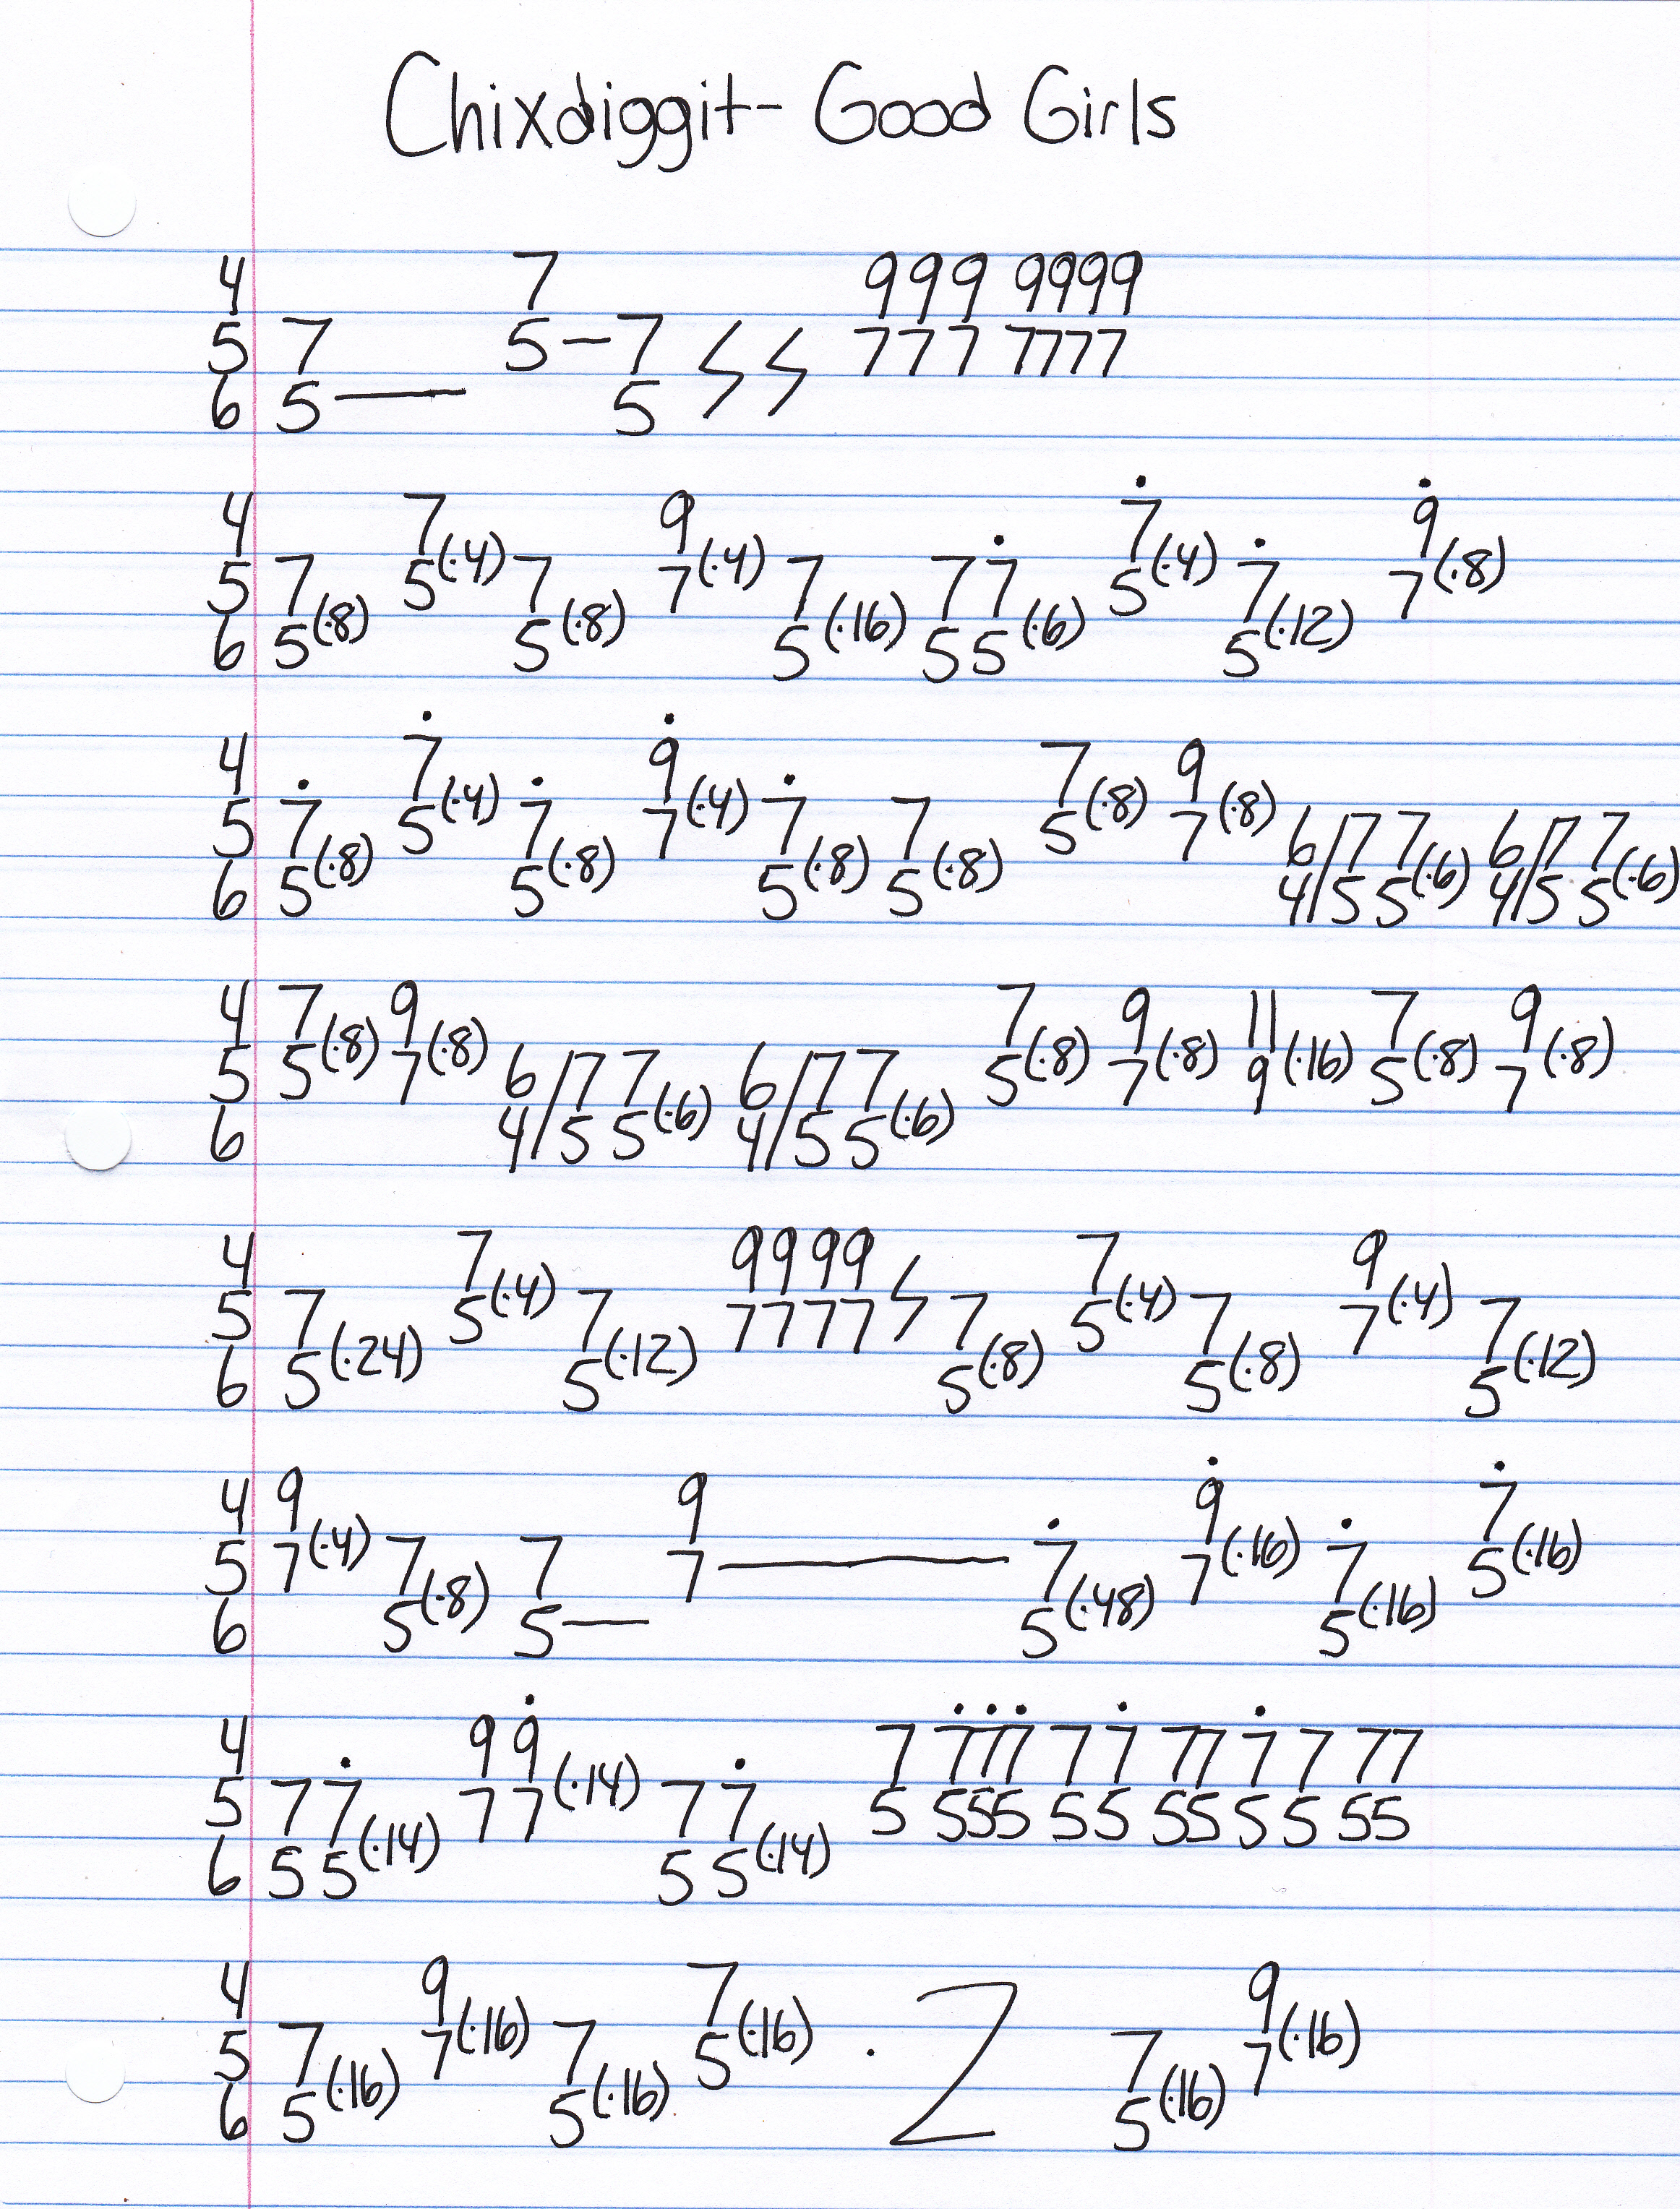 Chixdiggit - Good Girls
4 7 999 9999
5 7 5 – 7 ϟ ϟ 777 7777
6 5 —— 5
4 7 9 7̇ 9̇
5 7 5(·4) 7 7(·4) 7 7 7̇ 5(·4) 7̇ 7(·8)
6 5(·8) 5(·8) 5(·16) 5 5(·6) 5(·12)
4 7̇ 9̇ 7 9
5 7̇ 5(·4) 7̇ 7(·4) 7̇ 7 5(·8) 7(·8) 6/7 7 6/7 7
6 5(·8) 5(·8) 5(·8) 5(·8) 4/5 5(·6) 4/5 5(·6)
4 7 9 7 9 11 7 9
5 5(·8) 7(·8) 6/7 7 6/7 7 5(·8) 7(·8) 9(·16) 5(·8) 7(·8)
6 4/5 5(·6) 4/5 5(·6)
4 7 9999 7 9
5 7 5(·4) 7 7777 ϟ 7 5(·4) 7 7(·4) 7
6 5(·24) 5(·12) 5(·8) 5(·8) 5(·12)
4 9 9 9̇ 7̇
5 7(·4) 7 7 7 —— 7̇ 7(·16) 7̇ 5(·16)
6 5(·8) 5 — 5(·48) 5(·16)
4 9 9̇ 7 7̇7̇7̇ 7 7̇ 77 7̇ 7 77
5 7 7̇ 7 7(·14) 7 7̇ 5 555 5 5 55 5 5 55
6 5 5(·14) 5 5(·14)
4 9 7 9
5 7 7(·16) 7 5(·16) . 2 7 7(·16)
6 5(·16) 5(·16) 5(·16)